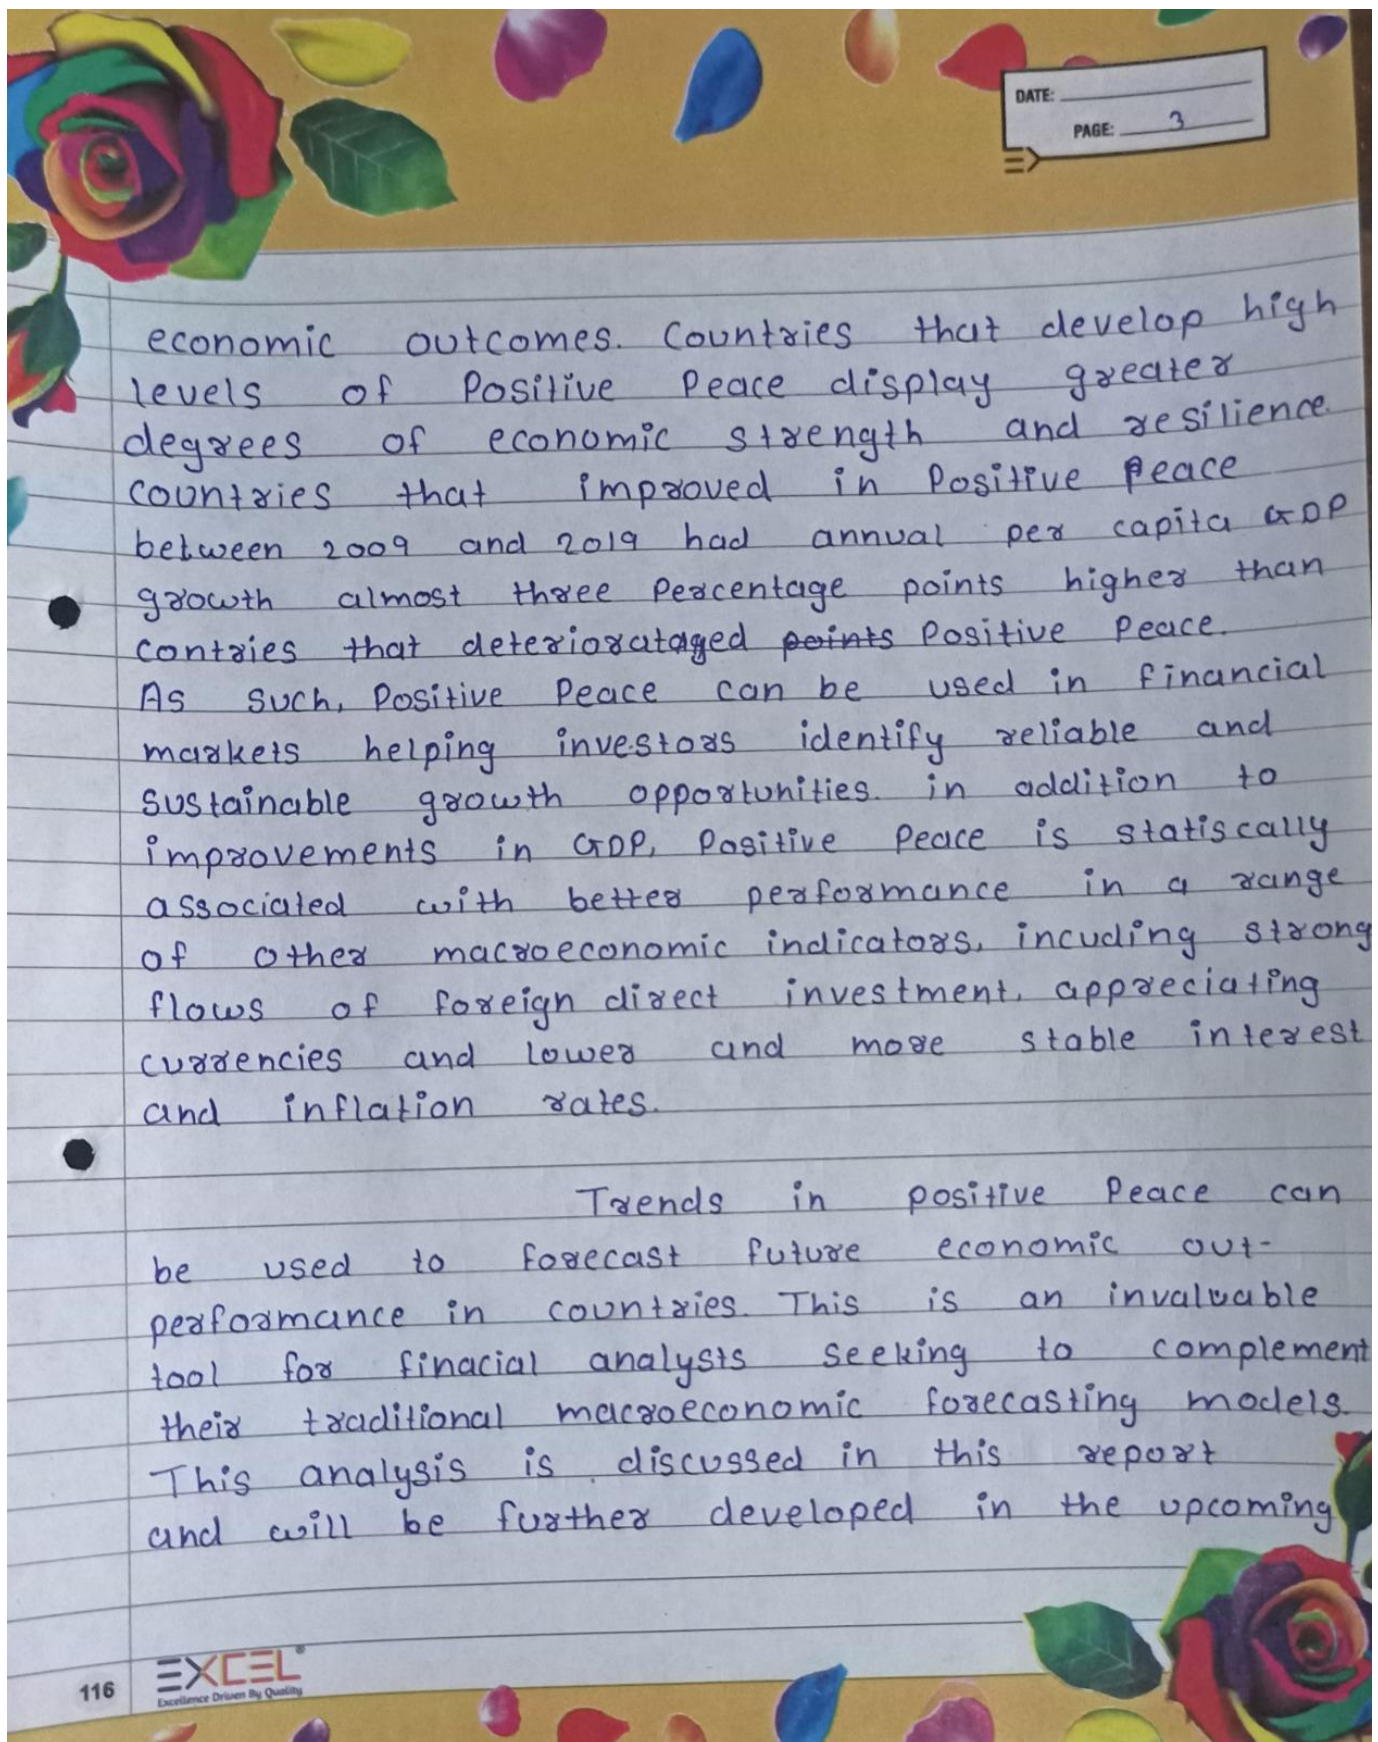 DATE:
PAGE: 3
economic outcomes. Countries that develop high
levels of Positive Peace display greater
degrees of economic strength and resilience.
countries that improved in Positive Peace
between 2009 and 2019 had annual per capita GDP
growth almost three Percentage points higher than
contries that deterioratarged points Positive Peace.
As such, Positive Peace can be used in financial
markets helping investors identify reliable and
sustainable growth opportunities. in addition to
improvements in GDP, Positive Peace is statiscally
associated with better performance in a range
of other macroeconomic indicators, incuding strong
flows of foreign direct investment, appreciating
currencies and lower and more stable interest
and inflation rates.
Trends in positive Peace can
be used to forecast future economic out-
performance in countries. This is an invaluable
tool for finacial analysts seeking to complement
their traditional macroeconomic forecasting models.
This analysis is discussed in this report
and will be further developed in the upcoming
116
EXCEL
Excellence Driven By Quality